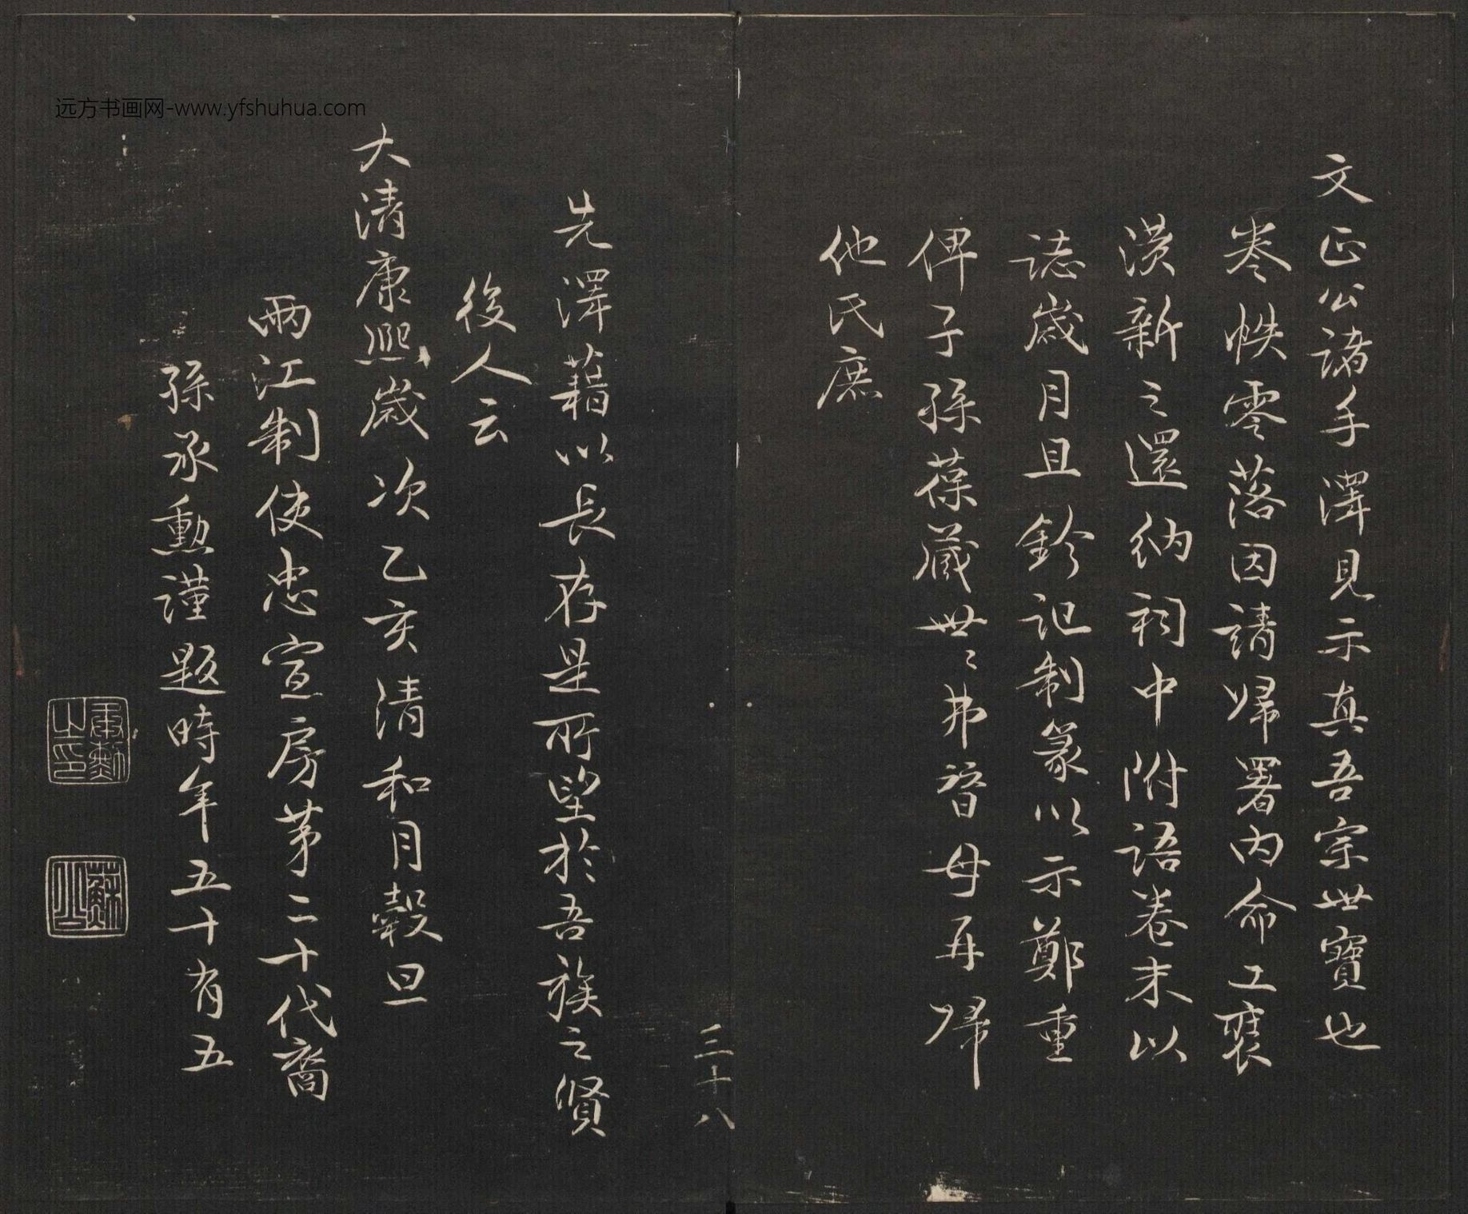 文正公諸手澤見示真吾宗世寶也
卷帙零落因請歸署內命工裝
潢新之還納祠中附語卷末以
誌歲月且鈐記制篆以示鄭重
俾子孫葆藏世〻弗替毋再歸
他氏庶
三十八
先澤藉以長存是所望於吾族之賢
後人云
大清康熙歲次乙亥清和月穀旦
兩江制使忠宣房苐二十代裔
孫承勳謹題時年五十有五
远方书画网-www.yfshuhua.com